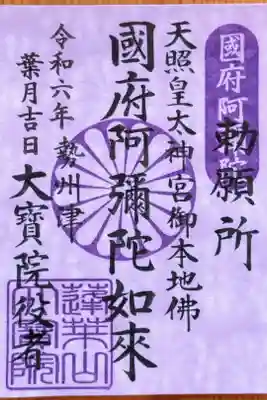 國府阿彌陀
勅願所
天照皇太神宮御本地佛
國府阿彌陀如來
勢州津
大寶院役者
令和六年
葉月吉日
蓮華山